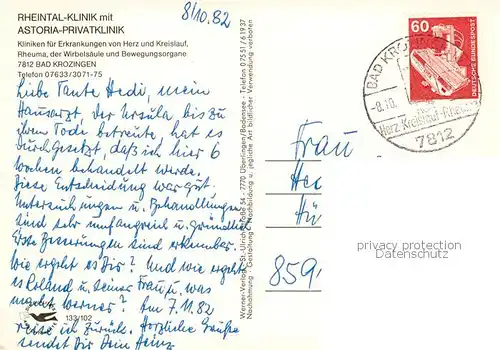 8/10. 82
RHEINTAL-KLINIK mit
ASTORIA-PRIVATKLINIK
Kliniken für Erkrankungen von Herz und Kreislauf,
Rheuma, der Wirbelsäule und Bewegungsorgane
7812 BAD KROZINGEN
Telefon 07633/3071-75
Liebe Tante Hedi, mein
Hausarzt, der Ursula bis zu
ihrem Tode betreute, hat es
durchgesetzt, daß ich hier 6
Wochen behandelt werde.
Diese Entscheidung war gut.
Untersuchungen u. Behandlungen
sind sehr umfangreich u. gründlich
Erste Besserungen sind erkennbar.
Wie ergeht es Dir? Und wie ergeht
es Roland u. seiner Frau, u. was
macht Werner? Am 7.11.82
reise ich zurück. Herzliche Grüße
sendet Dir Dein Heinz
133/102
Werner-Verlag · St.-Ulrich-Straße 54 - 7770 Überlingen/Bodensee · Telefon 07551/61937
Nachahmung · Gestaltung, Nachbildung u. jegliche Art bildlicher Verwendung verboten
60
DEUTSCHE BUNDESPOST
BAD KROZINGEN
-8.10.
Herz-Kreislauf-Rheuma
7812
Frau
He
Hü
859
privacy protection
Datenschutz